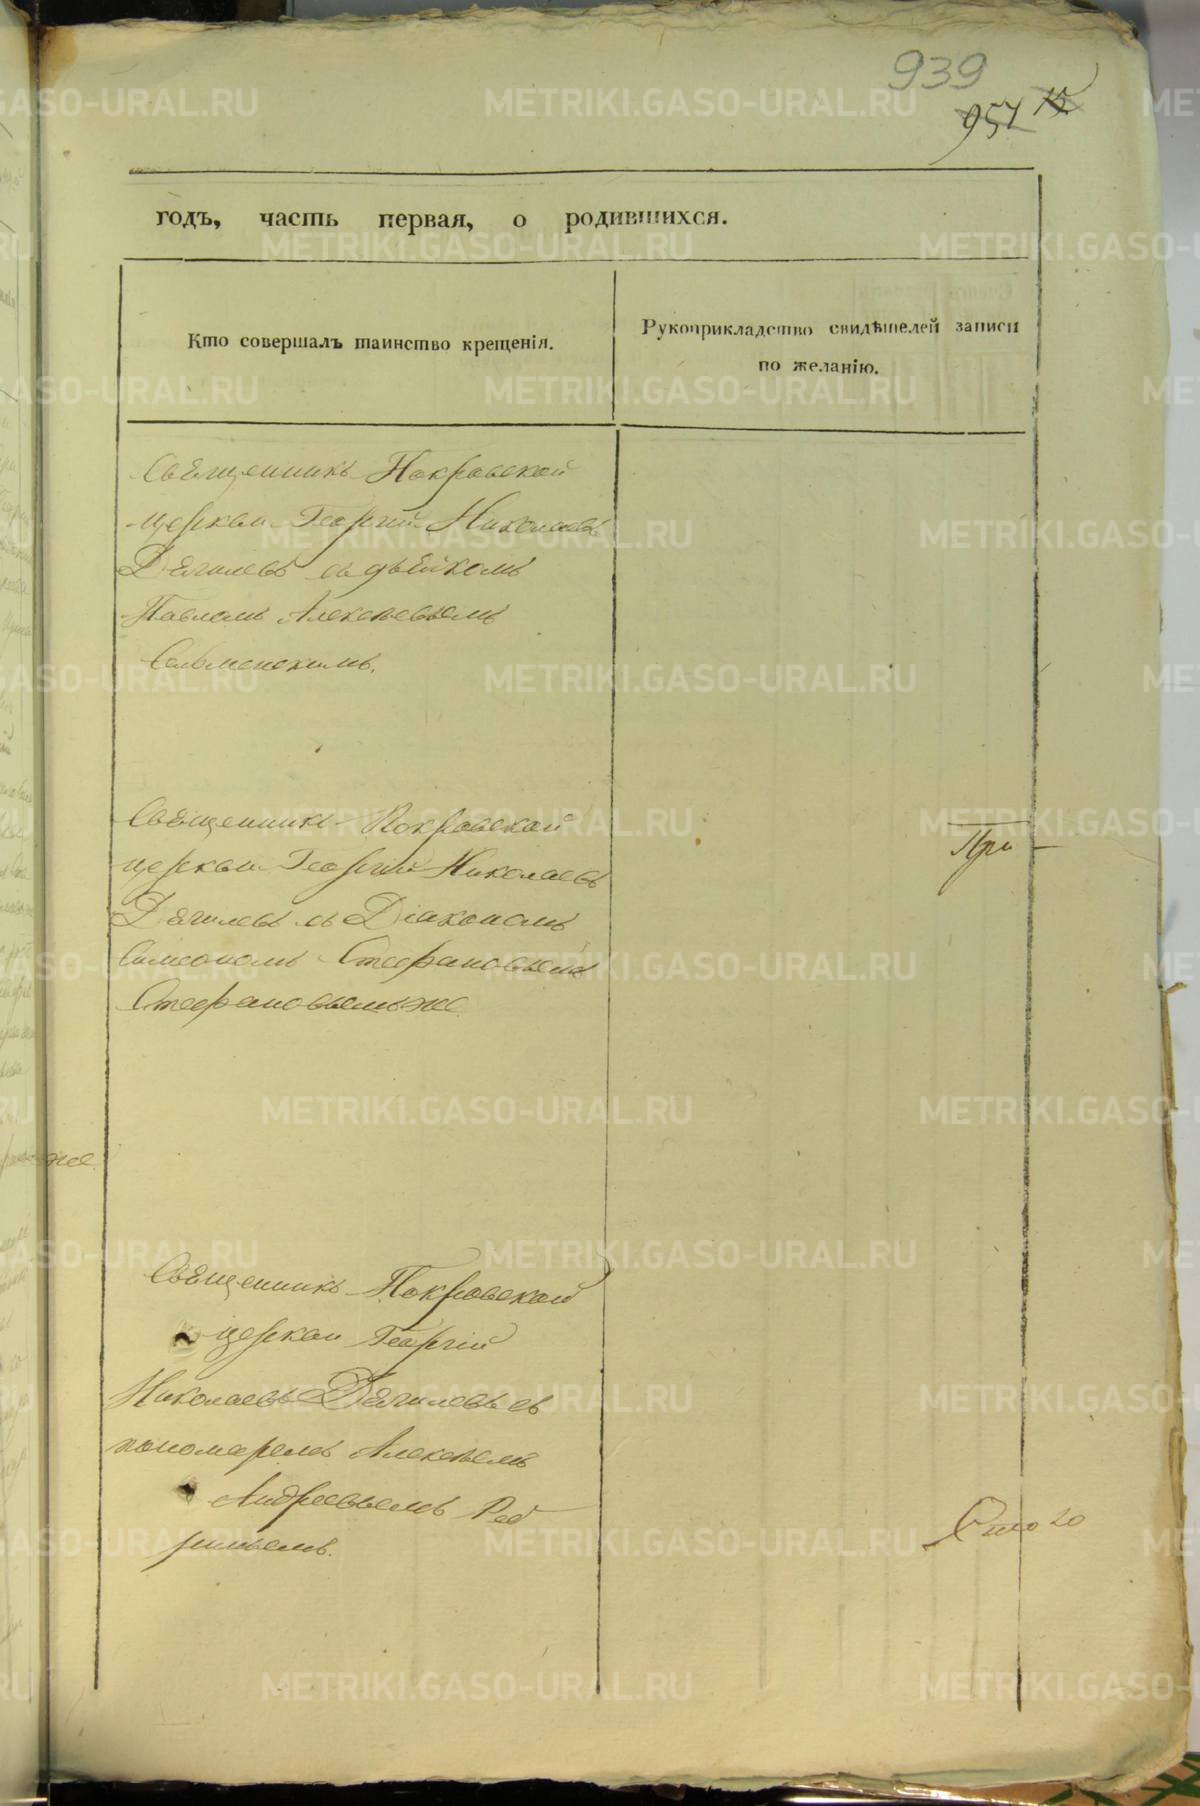 939
957 15
годъ, часть первая, о родившихся.
Кто совершалъ таинство крещенія.
Рукоприкладство свидѣтелей записи
по желанію.
Священникъ Покровской
церкви Георгій Николаевъ
Дягилевъ съ дьячкомъ
Павломъ Алексѣевымъ
Сельменскимъ.
Священникъ Покровской
церкви Георгій Николаевъ
Дягилевъ съ Діакономъ
Симеономъ Стефановымъ
Стефановымъ же
При
же
Священникъ Покровской
церкви Георгій
Николаевъ Дягилевъ съ
пономаремъ Алексѣемъ
Андреевымъ
Сто 20
METRIKI.GASO-URAL.RU